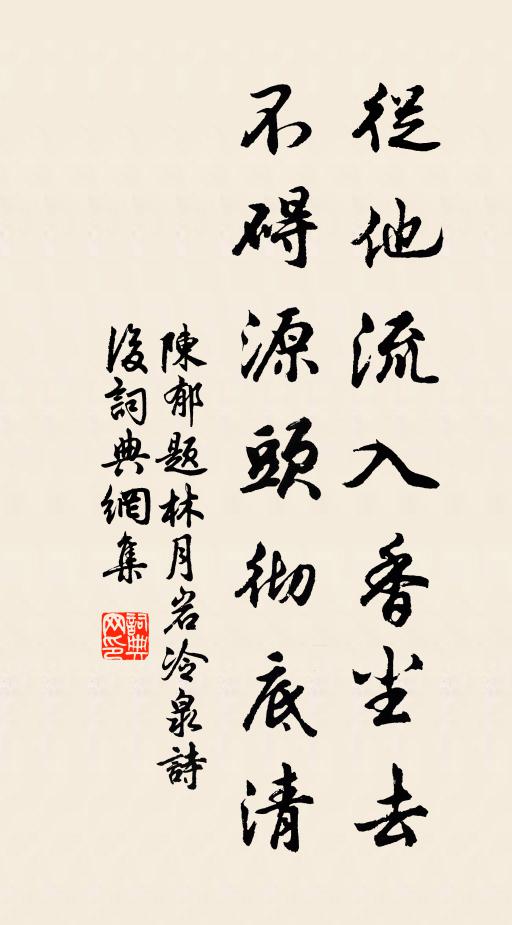 從他流入香尘去
不碍源頭彻底清
陳郁题林月岩冷泉詩
後詞典網集
詞典网印